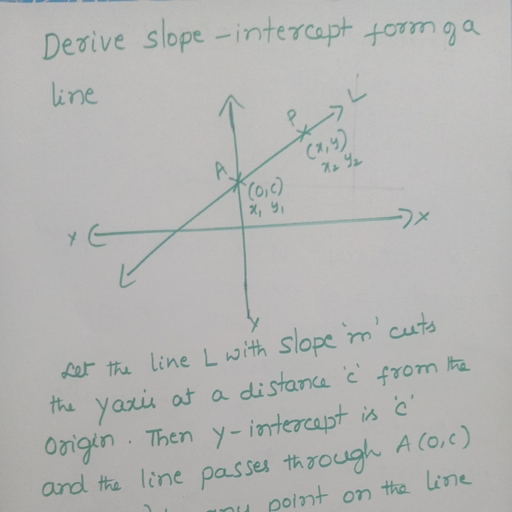 Derive slope-intercept form of a
line
L
P
(x,y)
x₂ y₂
A
(0,c)
x₁ y₁
x
x
y
Let the line L with slope 'm' cuts
the yaxis at a distance 'c' from the
origin. Then y-intercept is 'c'
and the line passes through A(0,c)
any point on the line